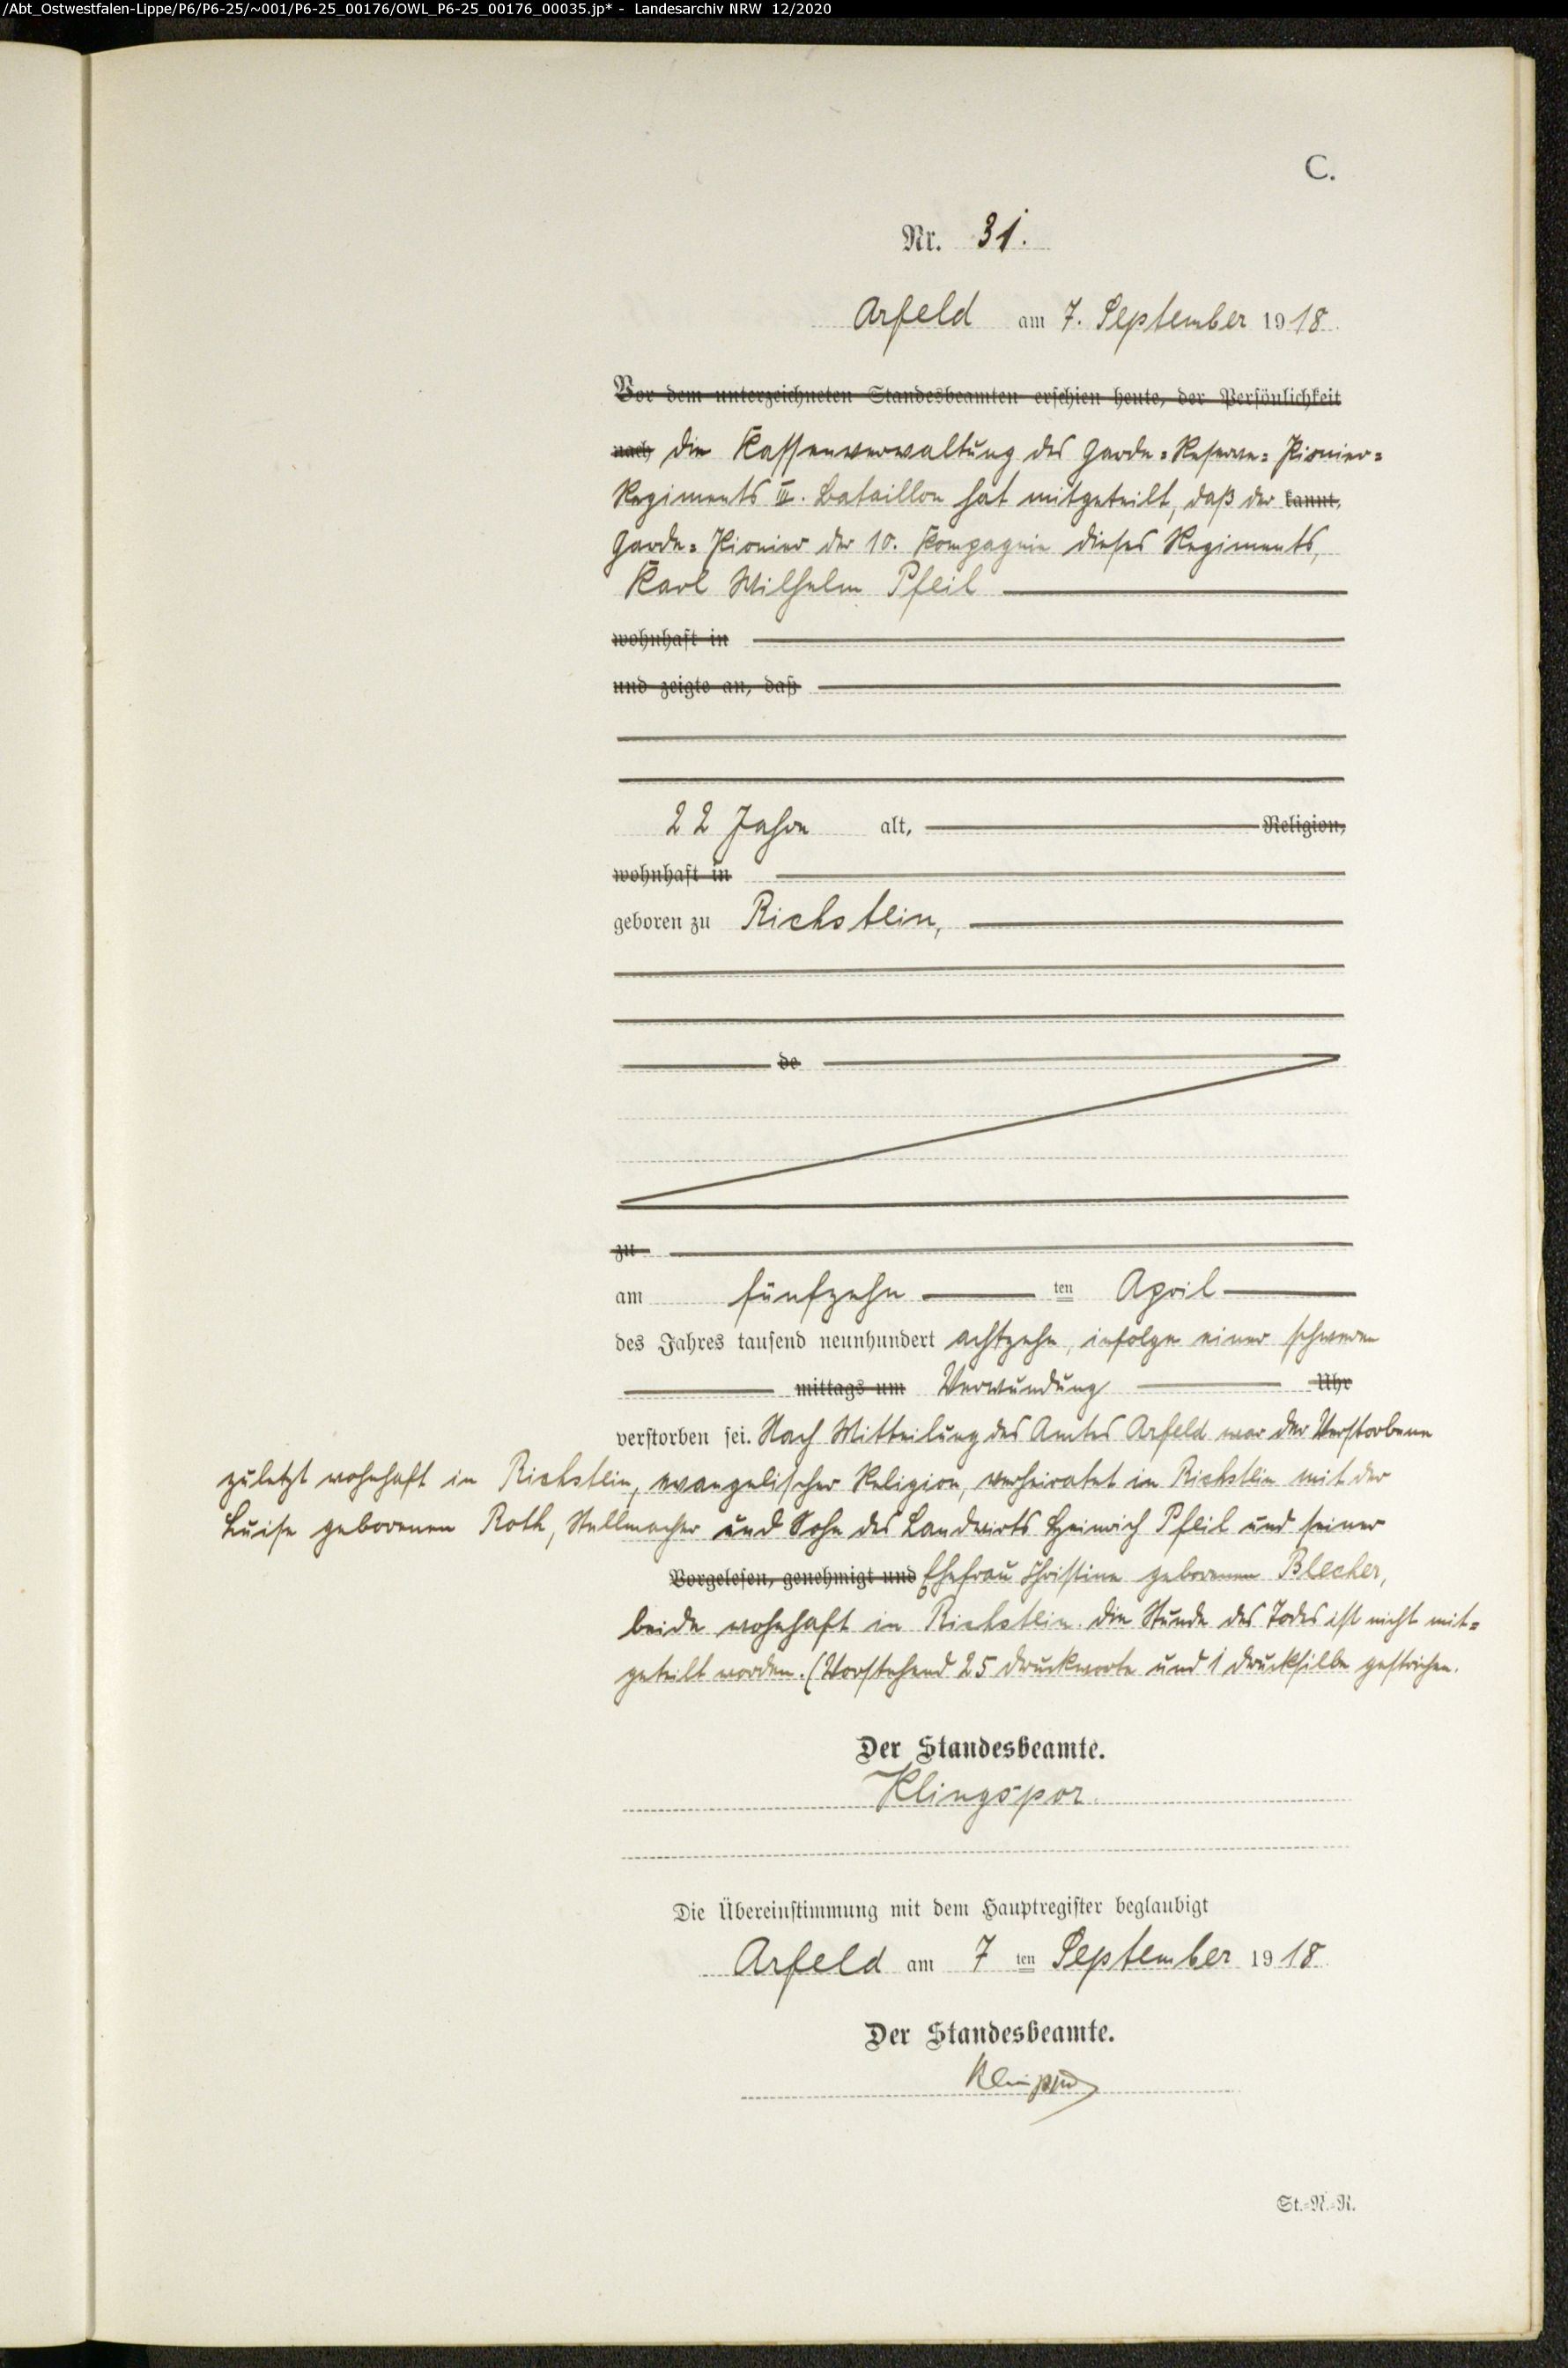 /Abt_Ostwestfalen-Lippe/P6/P6-25/~001/P6-25_00176/OWL_P6-25_00176_00035.jp* - Landesarchiv NRW 12/2020
C.
Nr. 31.
Arfeld am 7. September 1918.
Vor dem unterzeichneten Standesbeamten erschien heute, der Persönlichkeit
nach die Kassenverwaltung des Garde=Reserve=Pionier=
Regiments III. Bataillon hat mitgeteilt, daß der kannt,
Garde=Pionier der 10. Kompagnie dieses Regiments,
Karl Wilhelm Pfeil
wohnhaft in
und zeigte an, daß
22 Jahre alt, Religion,
wohnhaft in
geboren zu Richstein,
de
zu
am fünfzehn ten April
des Jahres tausend neunhundert achtzehn, infolge einer schweren
mittags um Verwundung Uhr
verstorben sei. Nach Mitteilung des Amtes Arfeld war der Verstorbene
zuletzt wohnhaft in Richstein, evangelischer Religion, verheiratet in Richstein mit der
Luise geborenen Roth, Stellmacher und Sohn des Landwirts Heinrich Pfeil und seiner
Vorgelesen, genehmigt und Ehefrau Christine geborenen Blecher,
beide wohnhaft in Richstein. Die Stunde des Todes ist nicht mit=
geteilt worden. (Vorstehend 25 Druckworte und 1 Drucksilbe gestrichen.
Der Standesbeamte.
Klingspor.
Die Übereinstimmung mit dem Hauptregister beglaubigt
Arfeld am 7 ten September 1918.
Der Standesbeamte.
Klingspor
St.=N.=R.